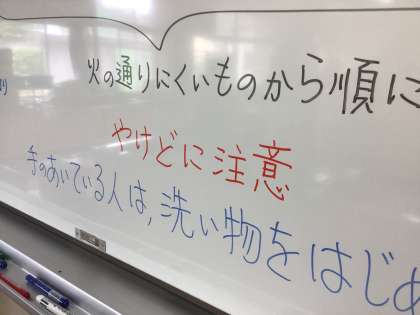 火の通りにくいものから順に
やけどに注意
手のあいている人は,洗い物をはじめ